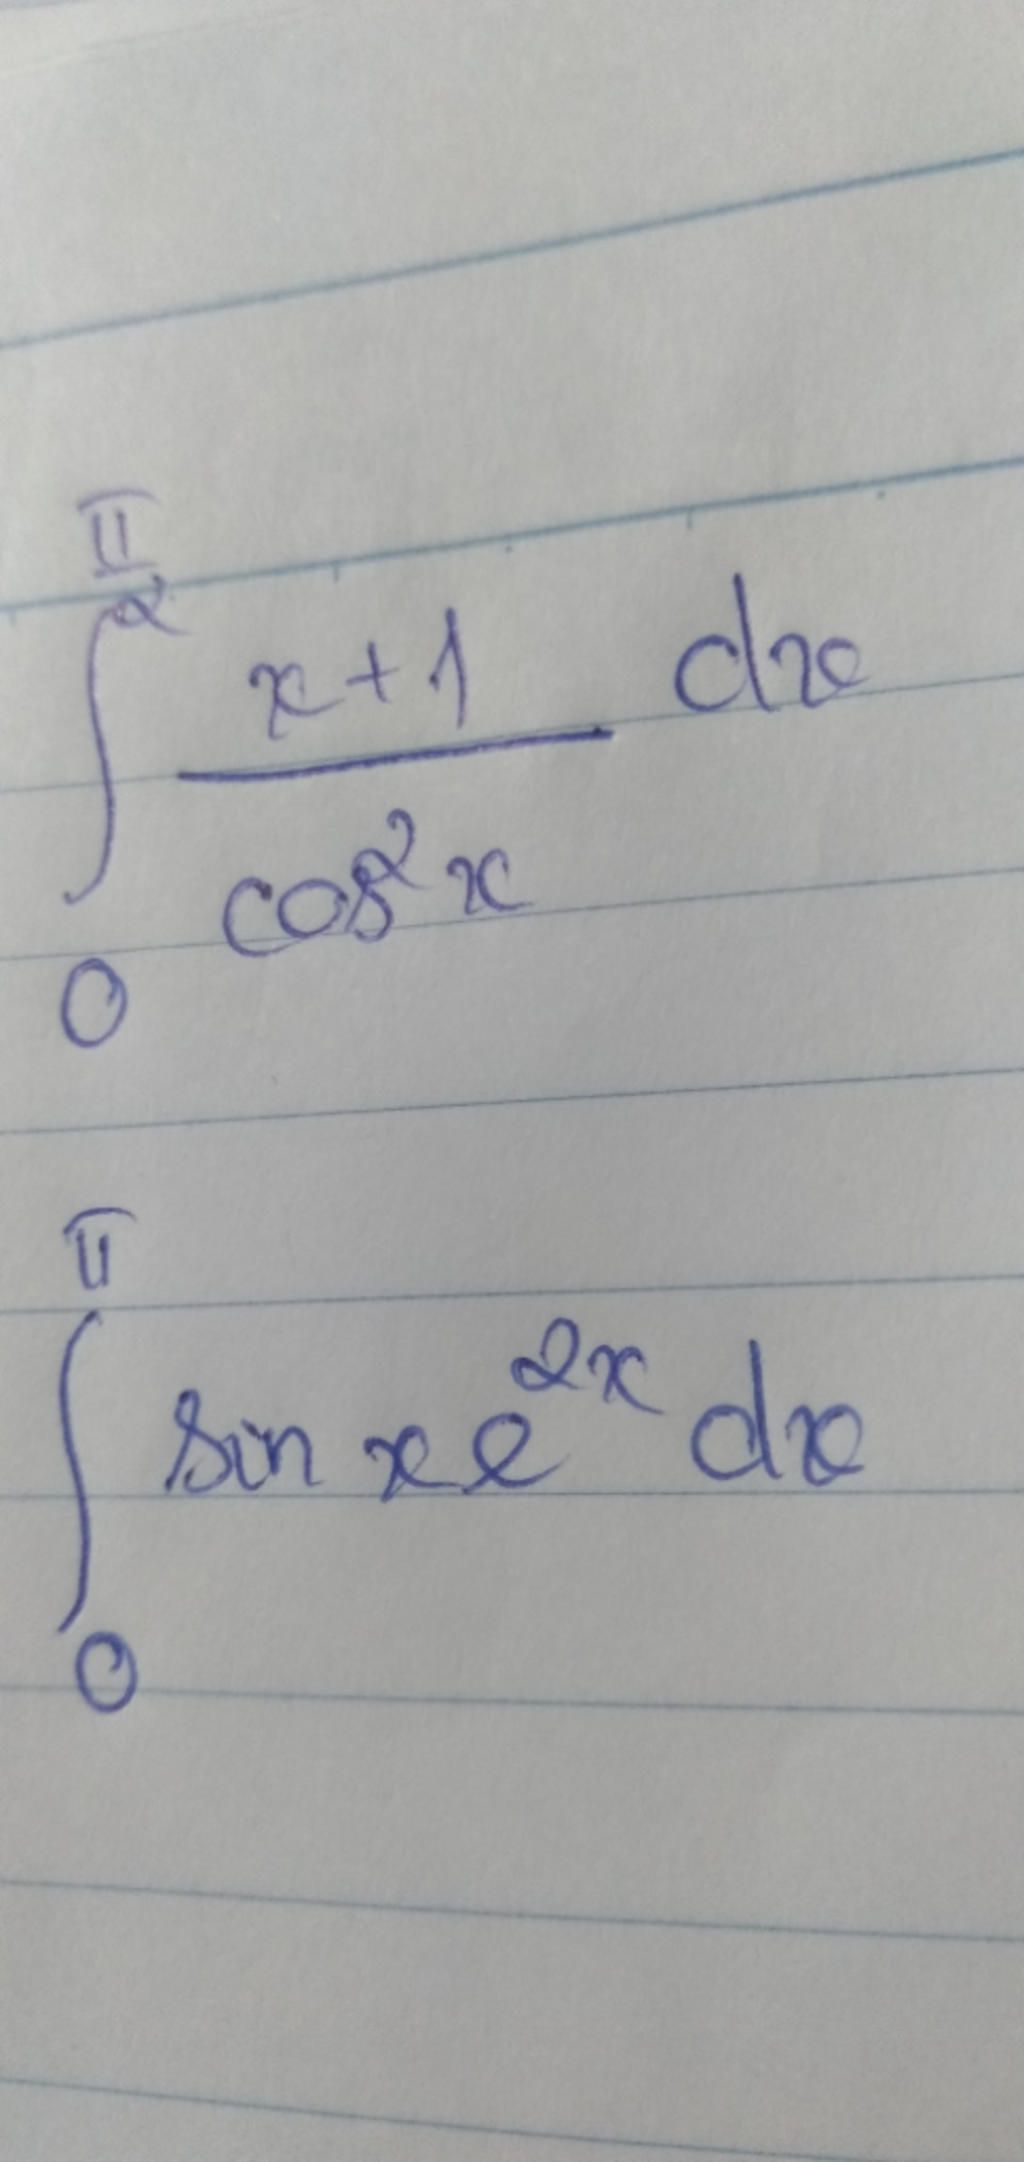 ∫₀^(π/2) (x+1)/(cos²x) dx
∫₀^π sin x e^(2x) dx